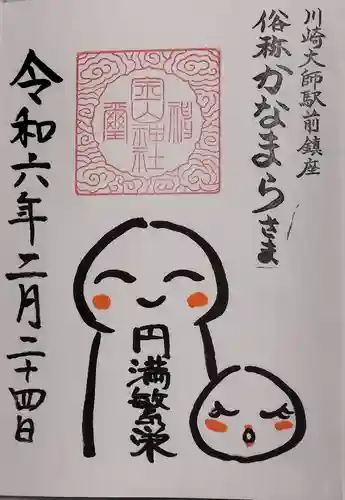 川崎大師駅前鎮座
俗称かなまらさま
金山神社
円満繁栄
令和六年二月二十四日